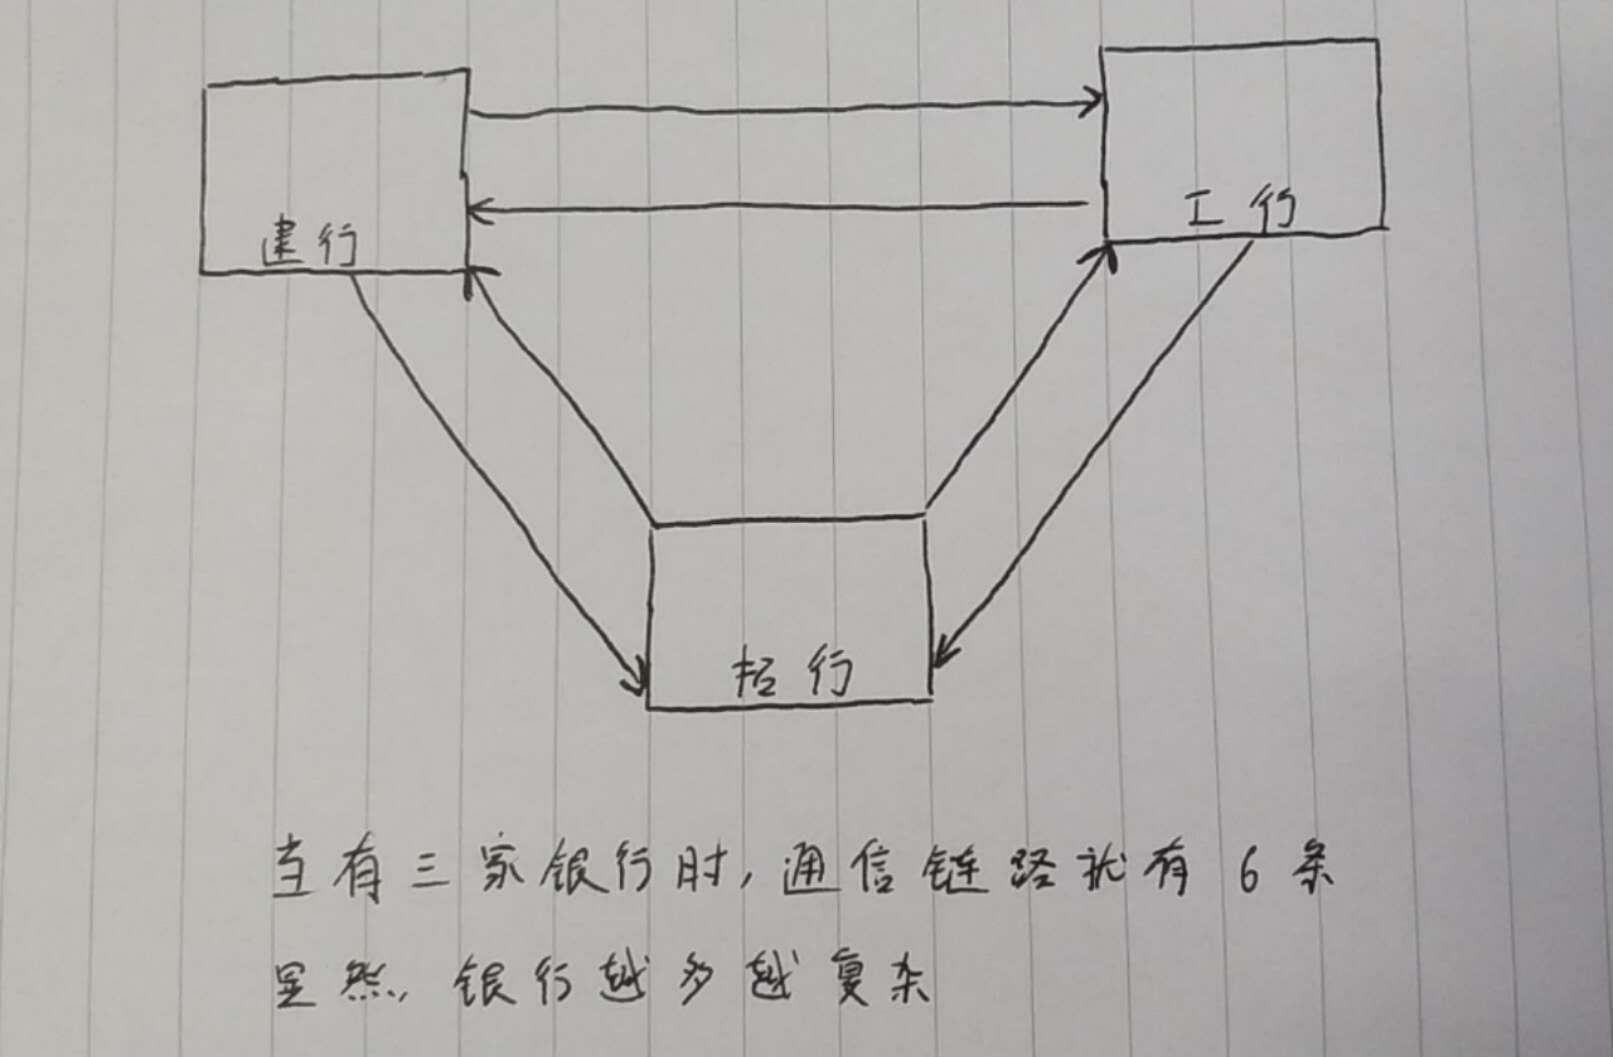 建行
工行
招行
当有三家银行时,通信链路就有6条
显然,银行越多越复杂